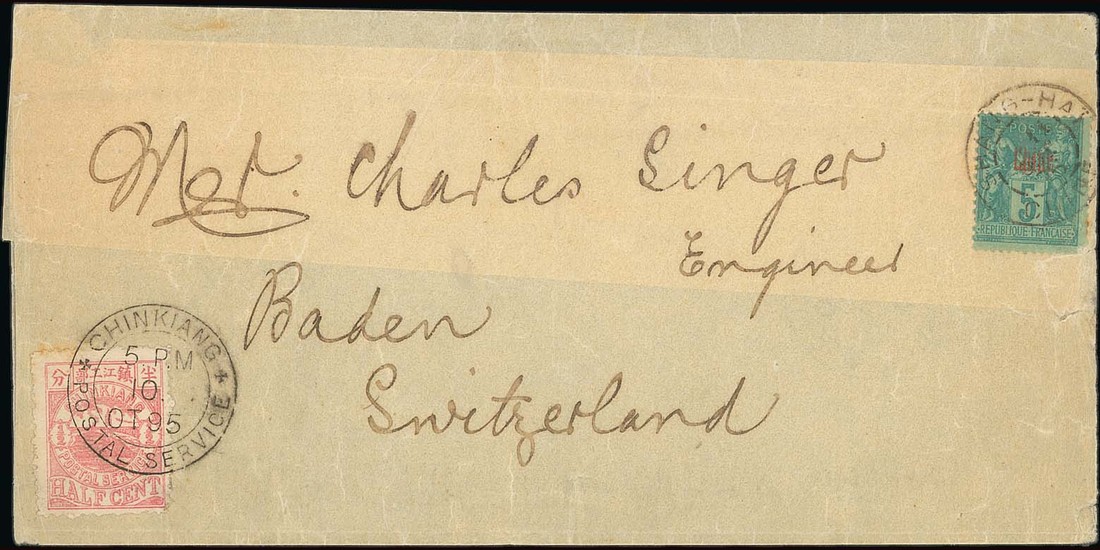 Mr. Charles Singer
Engineer
Baden
Switzerland
POSTES
Chine
5
REPUBLIQUE FRANCAISE
CHINKIANG
5 P.M
10
OT 95
POSTAL SERVICE
分 鎮江工部 半
POSTAL SERVICE
HALF CENT